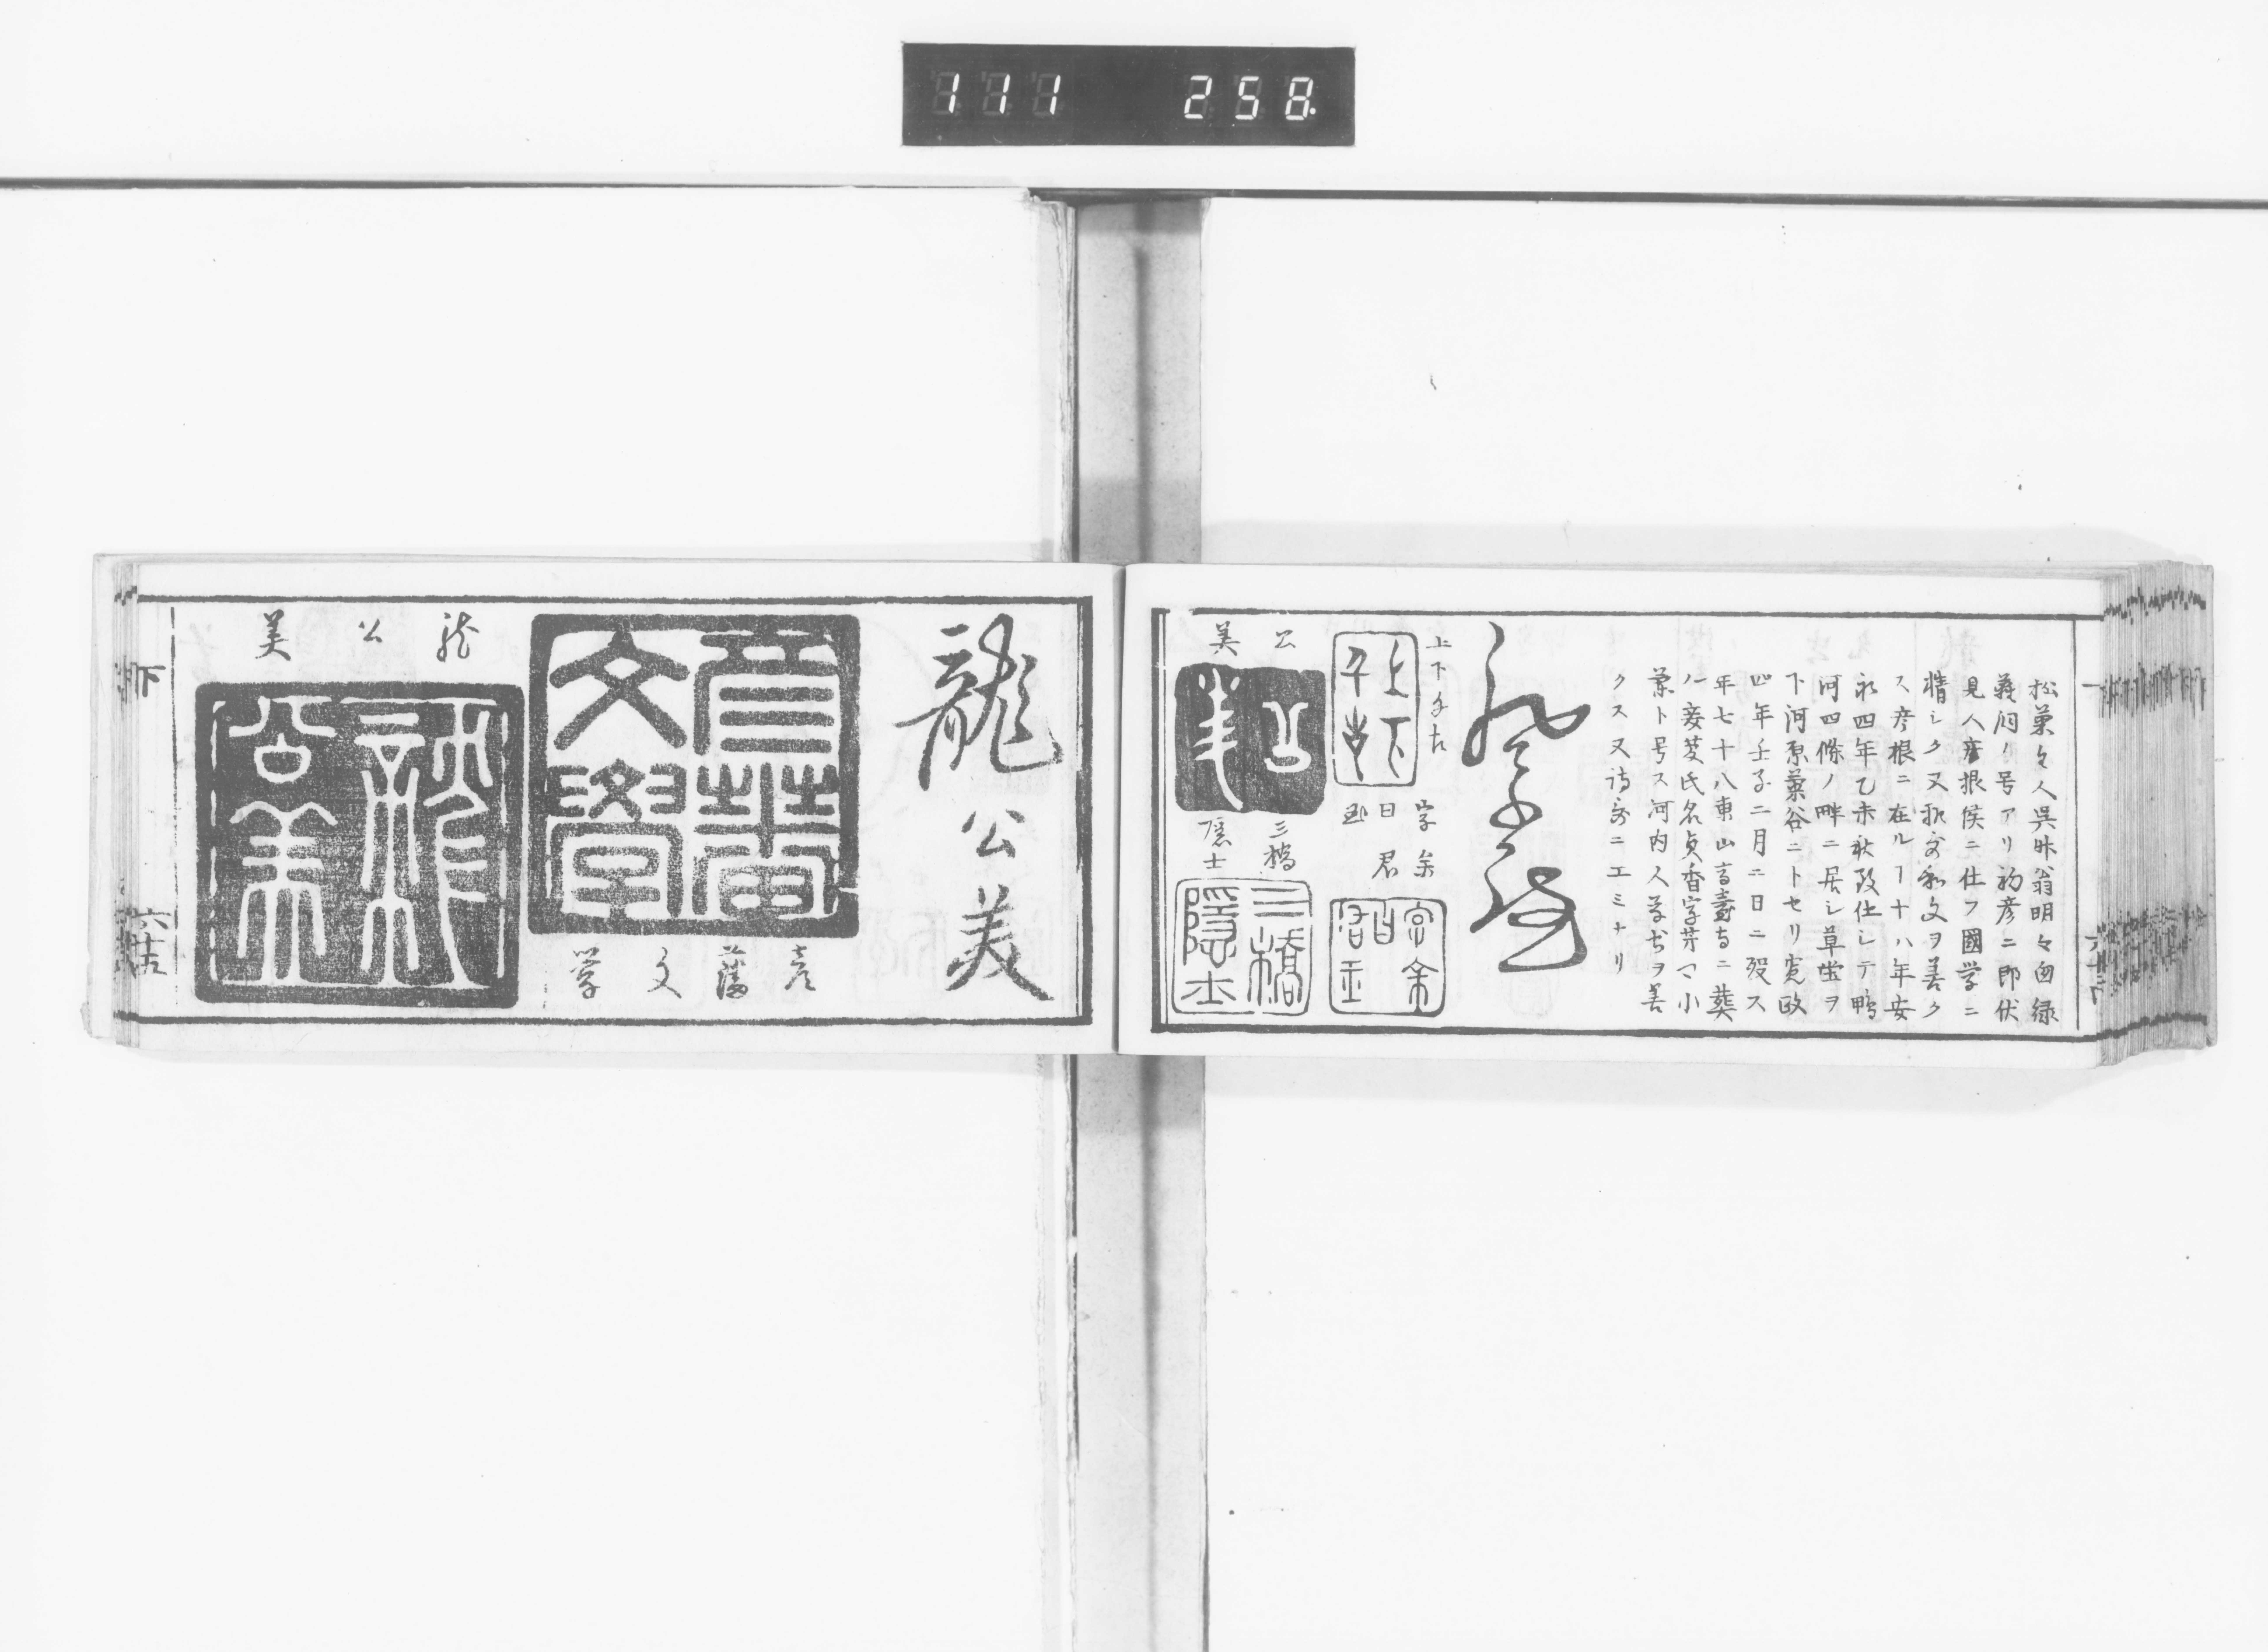 111 258
松菊々人呉昨翁明々窗緑
蘿洞ノ号アリ初彦ニ即伏
見人彦根侯ニ仕フ國学ニ
精シク又歌ヲ和文ヲ善ク
ス彦根ニ在ルヿ十八年安
永四年乙未秋致仕シテ鴨
河四條ノ畔ニ居シ草堂ヲ
下河原菊谷ニトセリ寛政
四年壬子二月二日ニ歿ス
年七十八東山高臺寺ニ葬
ル妾芝氏名貞香字芳マ小
菊ト号ス河内人草書ヲ善
クス又詩歌ニエミナリ
上下千古
上下千古
公美
公美
字余
曰君
玉
字余曰君玉
三橋
隱士
三橋隱士
龍公美
彦藩文學
彦藩文学
龍公美
龍公美
下
六十五